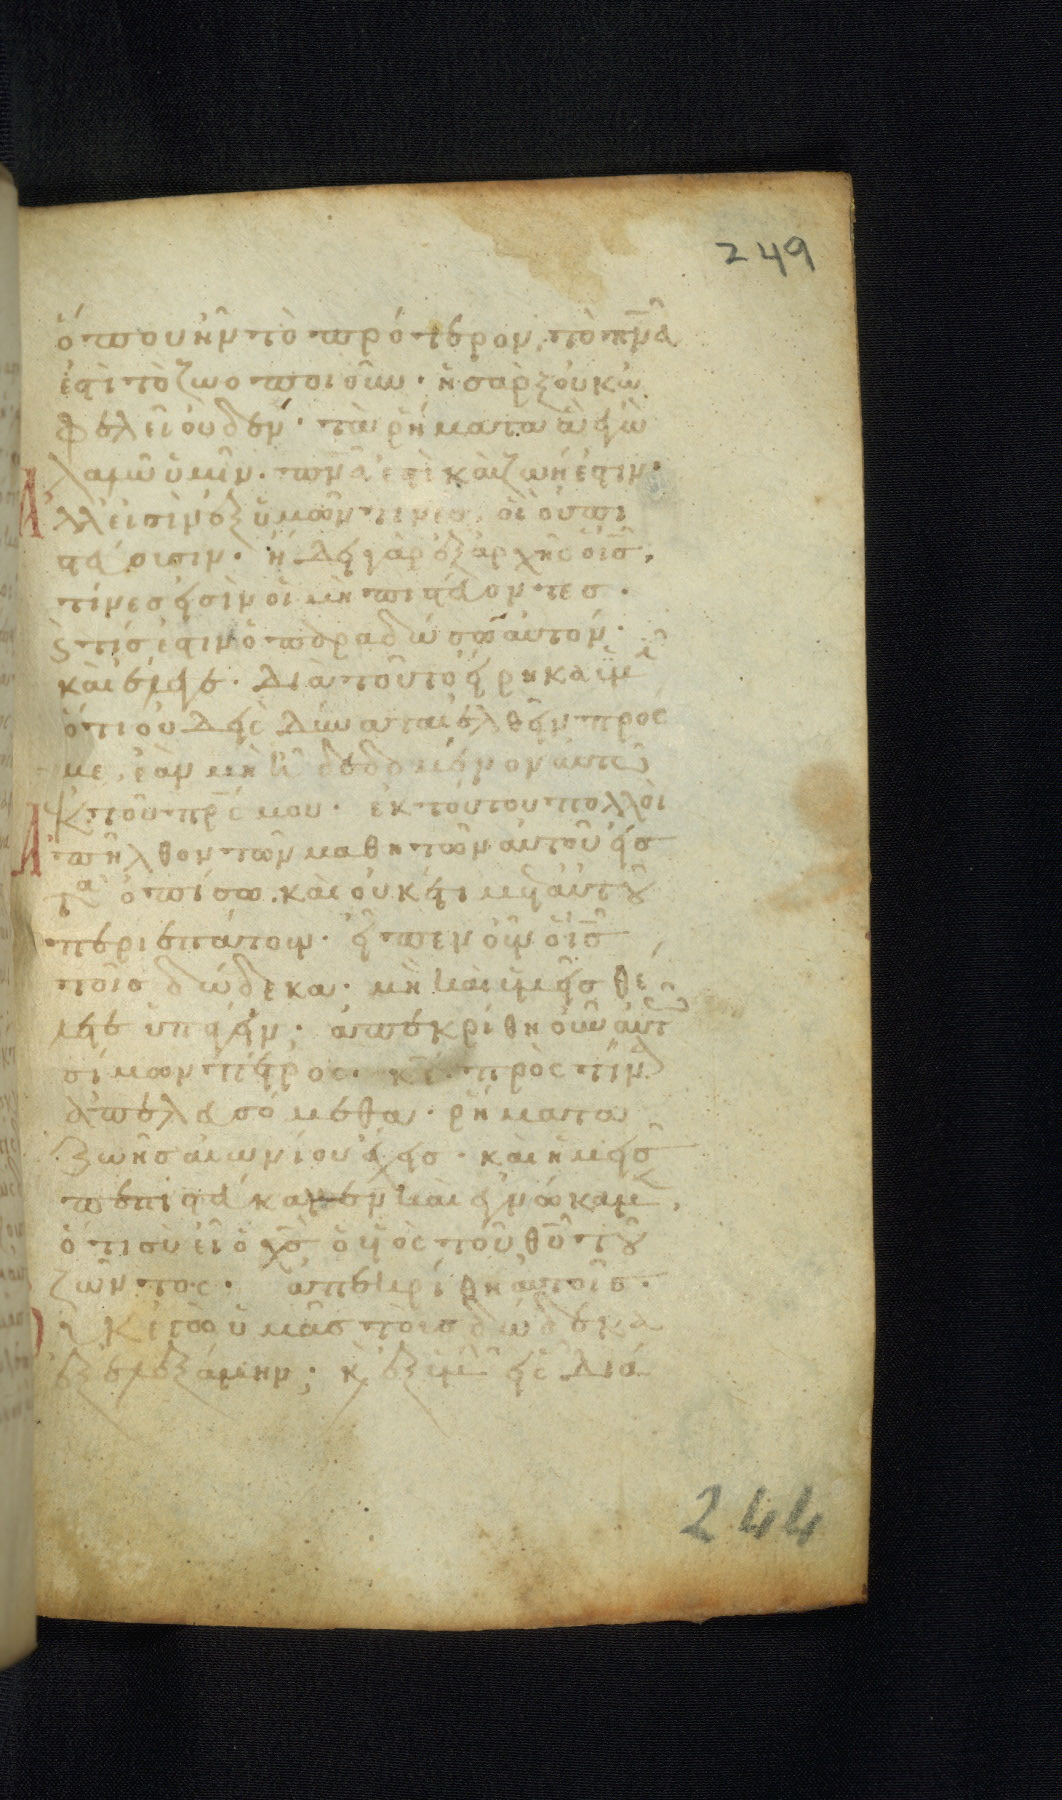 249
ὅπου ἦν τὸ πρότερον. τὸ πν̅α
ἐστὶ τὸ ζωοποιοῦν. ἡ σὰρξ οὐκ ὠ
φελεῖ οὐδέν. τὰ ῥήματα ἃ ἐγὼ
λαλῶ ὑμῖν. πν̅α ἐστὶ καὶ ζωή ἐστιν.
Ἀλλ' εἰσὶν ἐξ ὑμῶν τινὲς οἳ οὐ πι
στεύουσιν. ἤδει γὰρ ἐξ ἀρχῆς ὁ ις̅,
τίνες εἰσὶν οἱ μὴ πιστεύοντες.
ϛ τίς ἐστιν ὁ παραδώσων αὐτόν.
καὶ ἔλεγε. διὰ τοῦτο εἴρηκα ὑμῖν
ὅτι οὐδεὶς δύναται ἐλθεῖν πρός
με, ἐὰν μὴ ᾖ δεδομένον αὐτῶ
ἐκ τοῦ πρ̅ς μου. ἐκ τούτου πολλοὶ
Ἀπῆλθον τῶν μαθητῶν αὐτοῦ εἰς
τὰ ὀπίσω. καὶ οὐκέτι μετ' αὐτοῦ
περιεπάτουν. εἶπεν οὖν ὁ ις̅
τοῖς δώδεκα. μὴ καὶ ὑμεῖς θέ
λετε ὑπάγειν. ἀπεκρίθη οὖν αὐτῶ
σίμων πέτρος. κε̅. πρὸς τίνα
ἀπελευσόμεθα. ῥήματα
ζωῆς αἰωνίου ἔχεις. καὶ ἡμεῖς
πεπιστεύκαμεν καὶ ἐγνώκαμεν,
ὅτι σὺ εἶ ὁ χς̅ ὁ υἱὸς τοῦ θυ̅ τοῦ
ζῶντος. ἀπεκρίθη αὐτοῖς.
Οὐκ ἐγὼ ὑμᾶς τοὺς δώδεκα
ἐξελεξάμην; κ ἐξ ὑμῶν εἷς διά
244